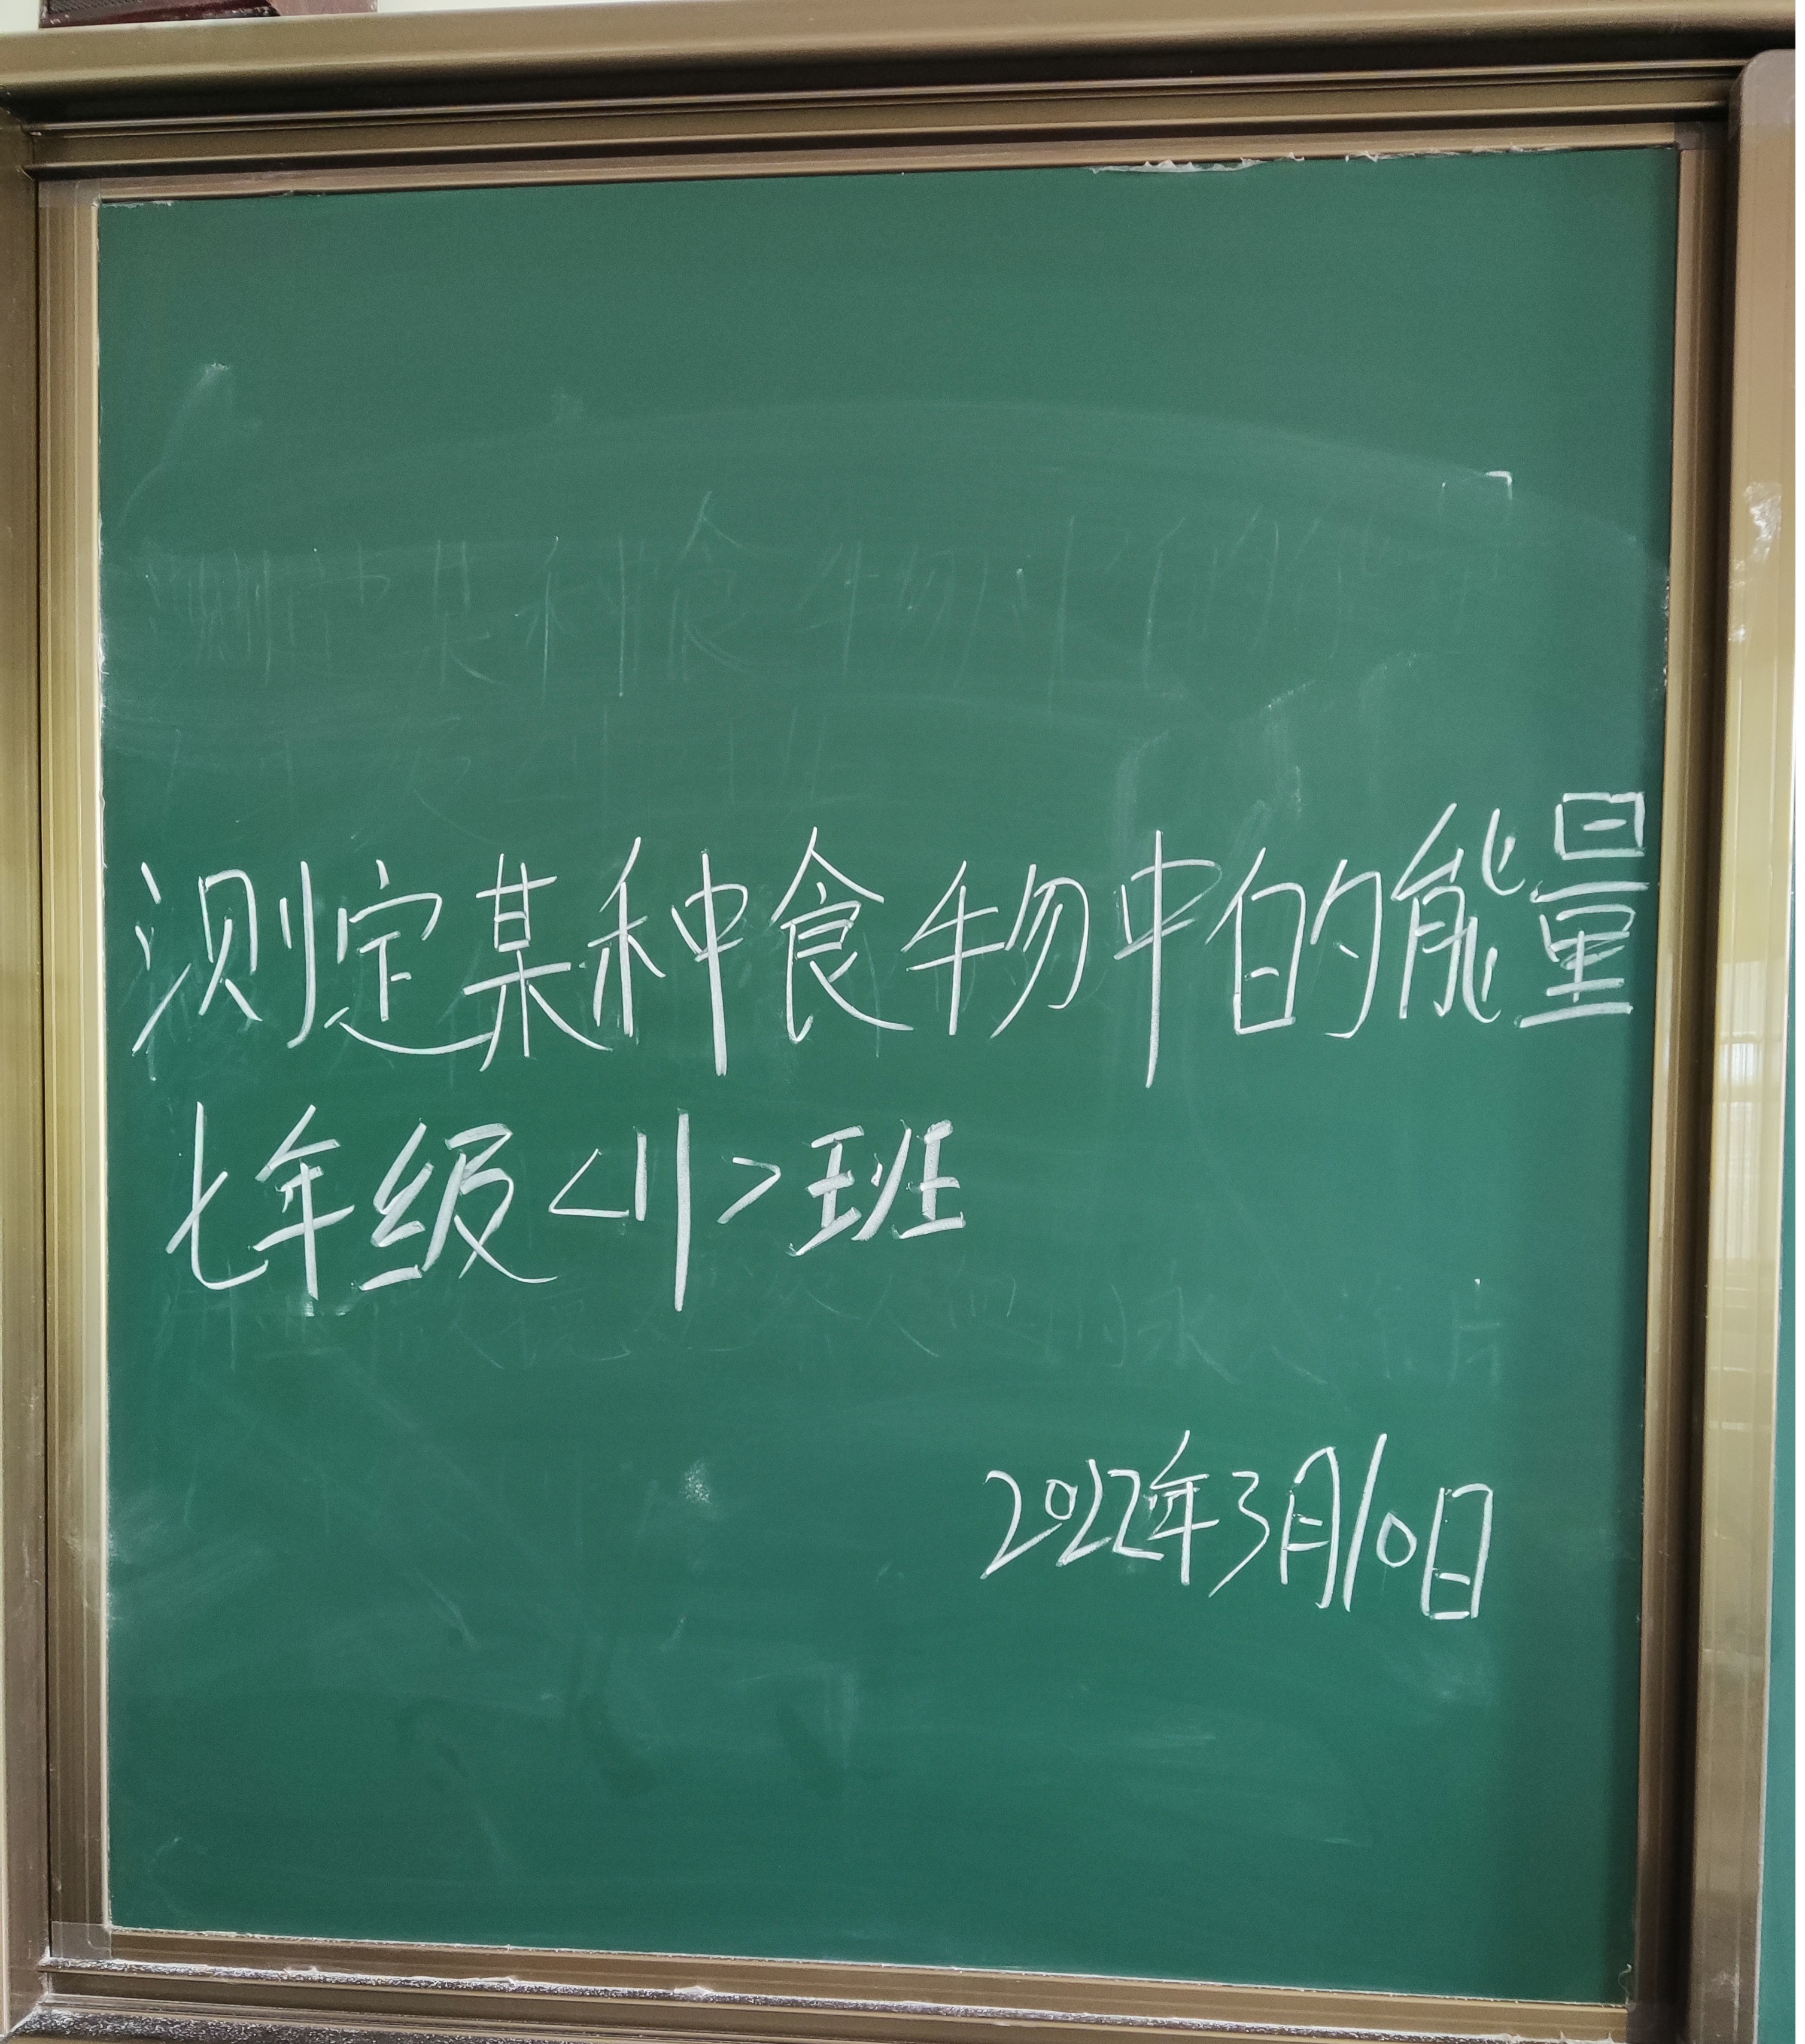 测定某种食物中的能量
七年级<11>班
2022年3月10日